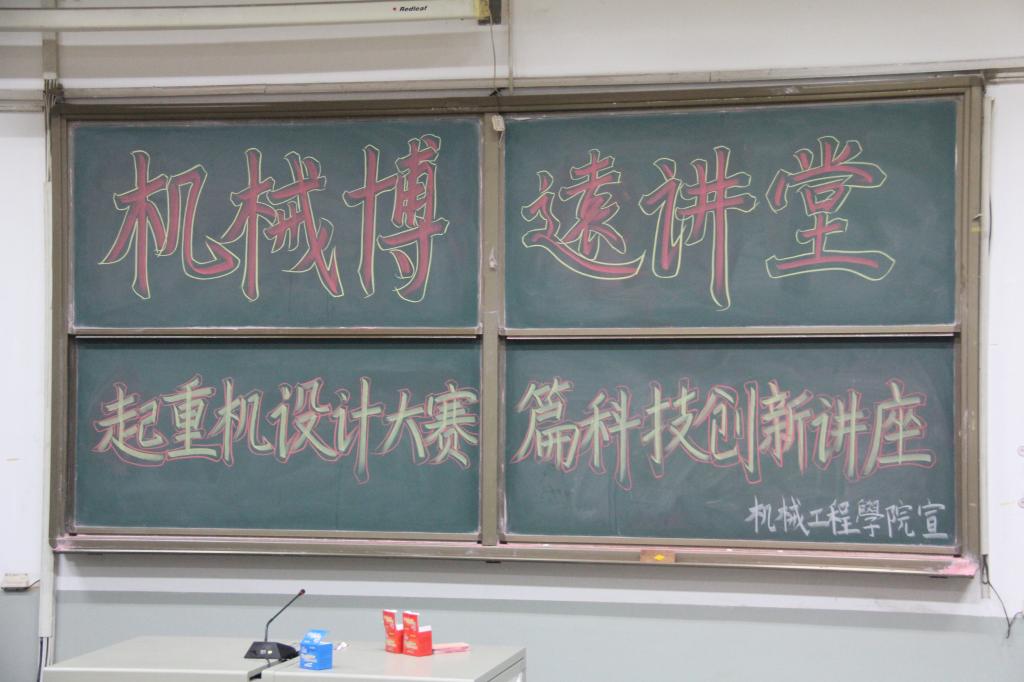 Redleaf
机械博遠讲堂
起重机设计大赛篇科技创新讲座
机械工程學院宣